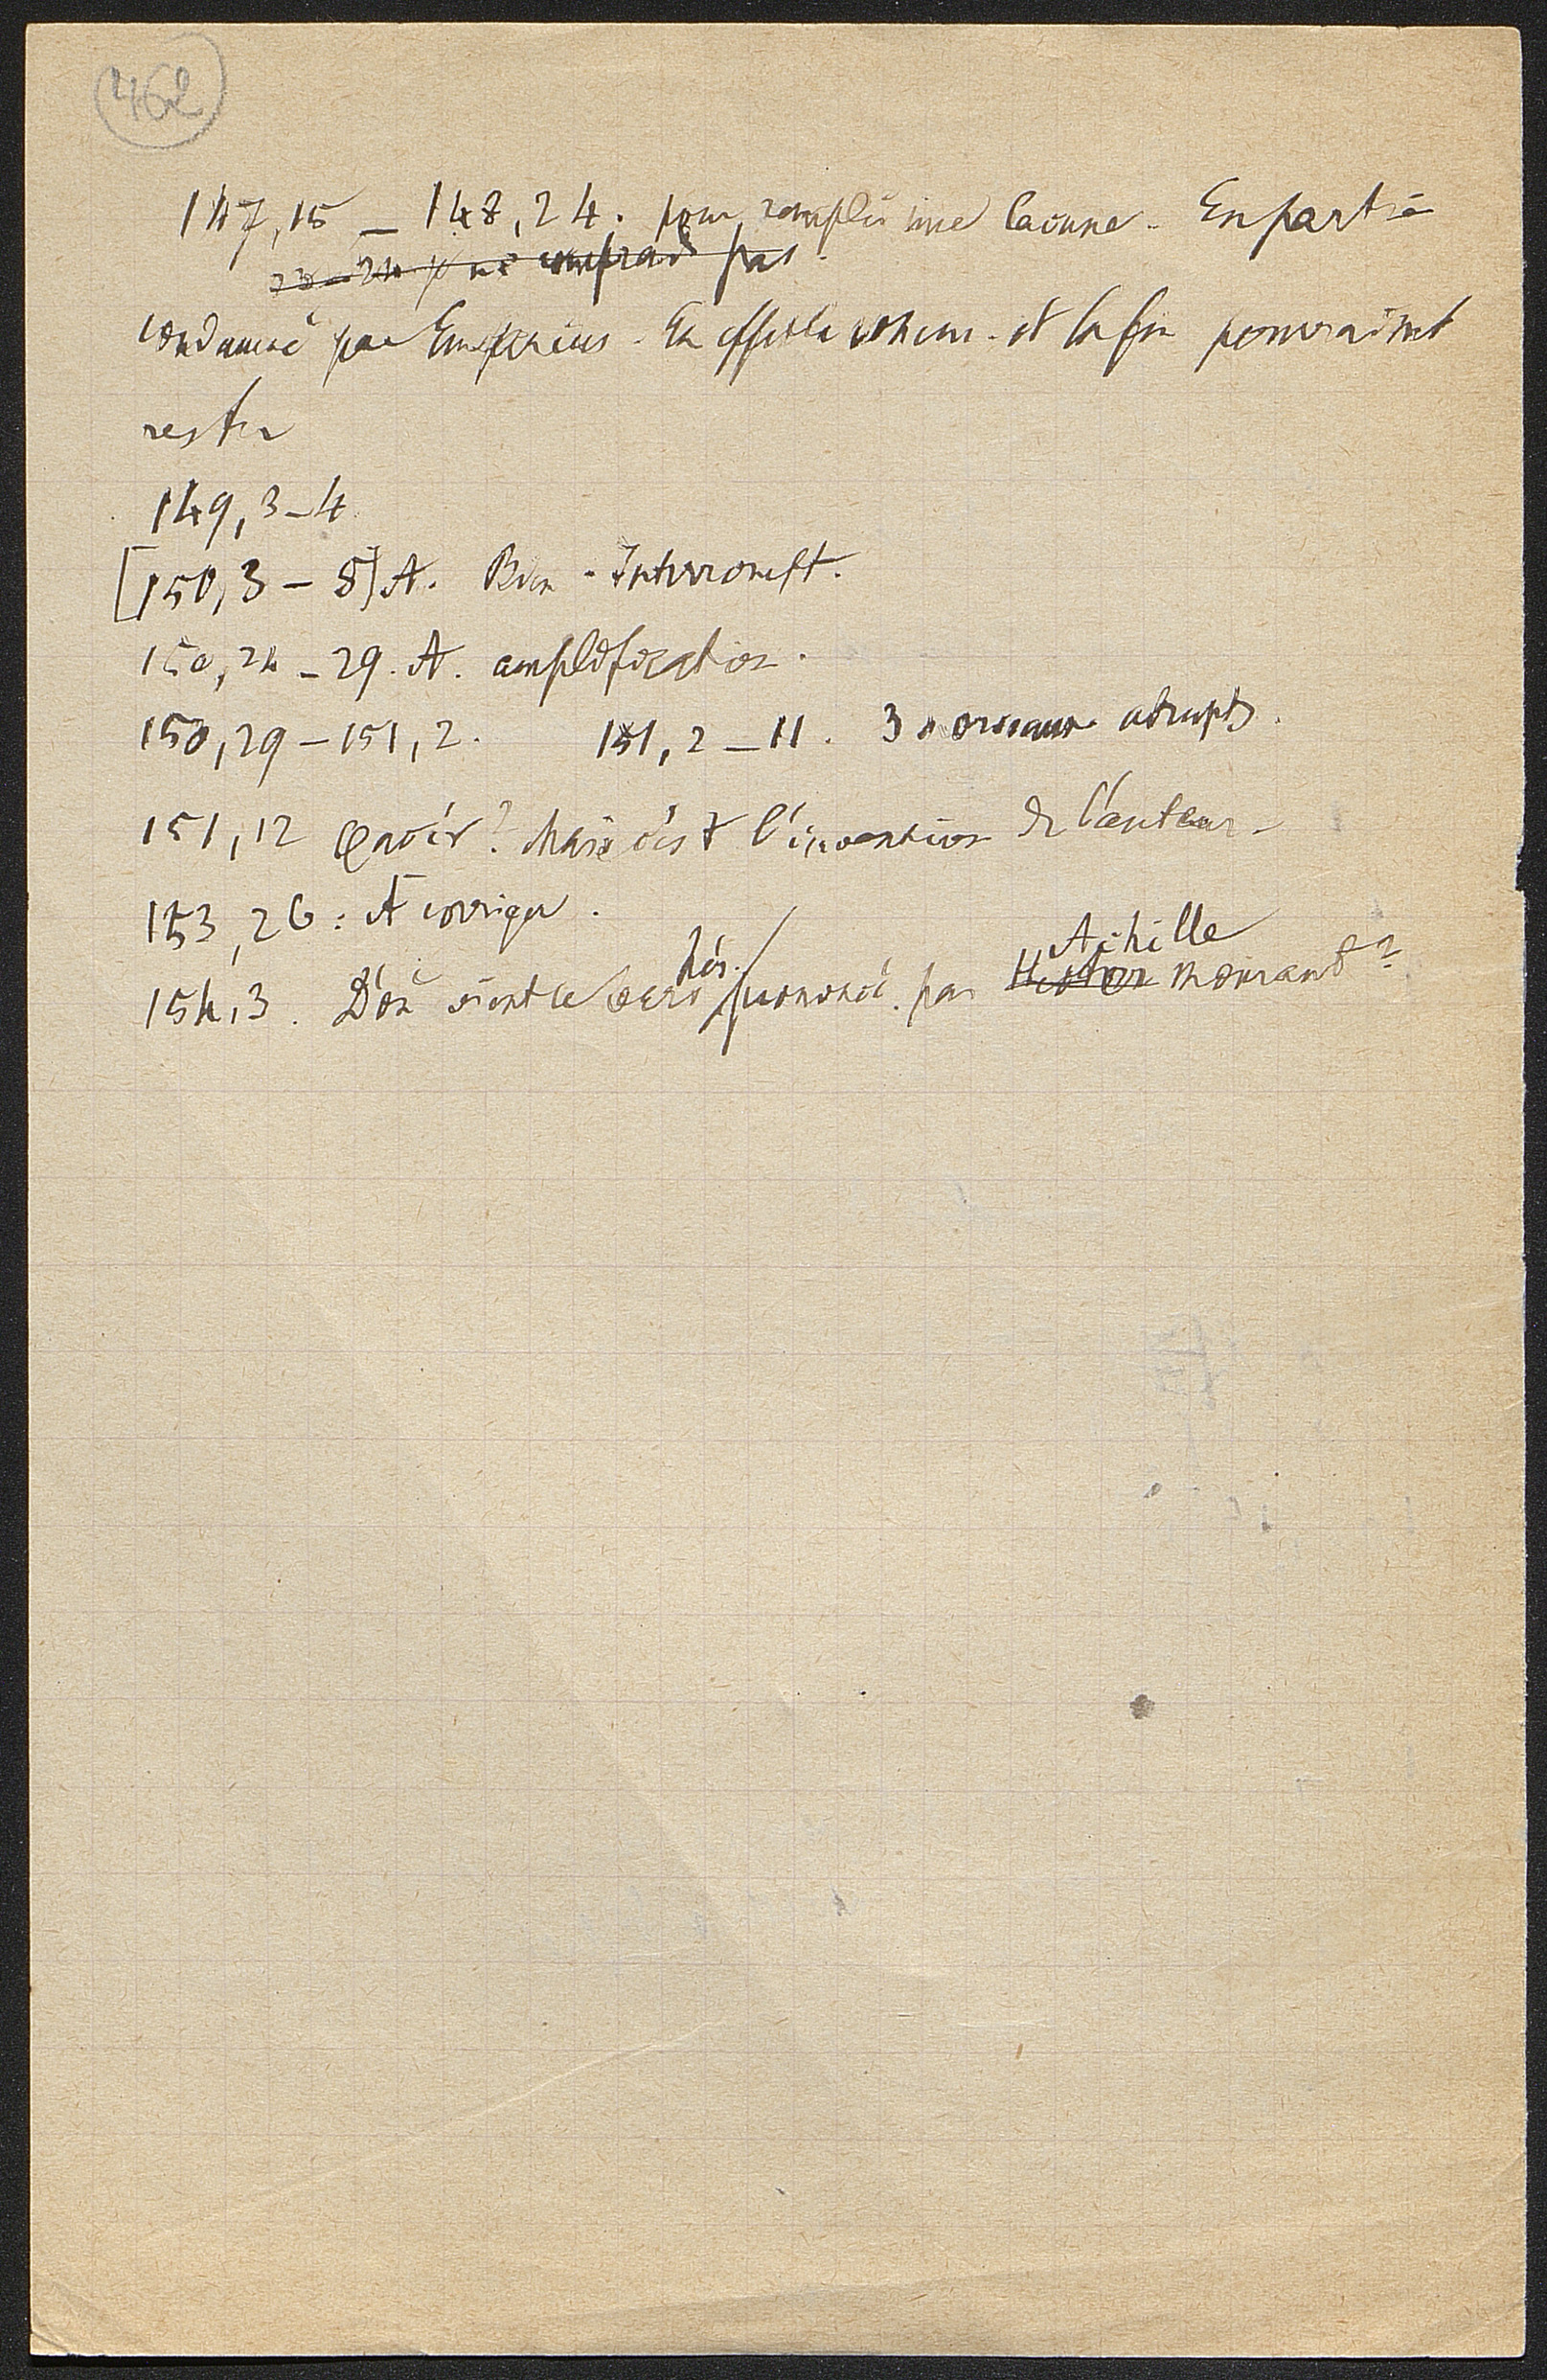 462
147,15 – 148,24. pour remplir une lacune. En partie
23–24 je ne comprends pas.
condamné par Emperius. En effet le comm. et la fin pourraient
rester
149,3–4
[150,3–8] A. Bien. Interrompt.
150,24–29. A. amplification.
150,29–151,2. 151,2–11. 3 morceaux abrupts.
151,12 Mais c'est l'invention de l'auteur.
153,26: A corriger.
154,3. D'où vient le vers pronon­cé par Achille mourant?